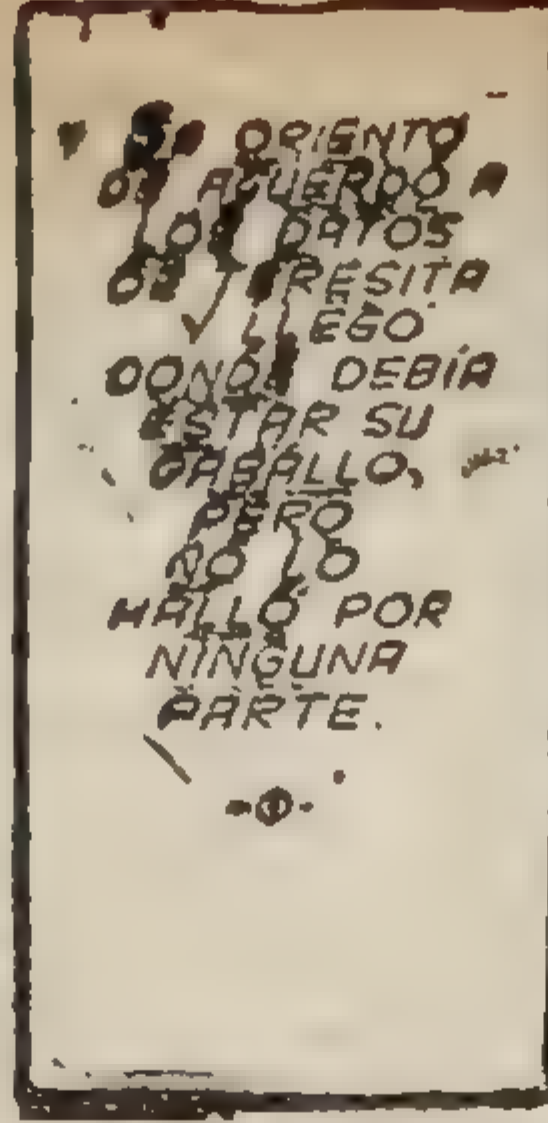 ORIENTO
DE ACUERDO A
LOS DATOS
DE TERESITA
Y LLEGO
DONDE DEBÍA
ESTAR SU
CABALLO,
PERO
NO LO
HALLÓ POR
NINGUNA
PARTE.